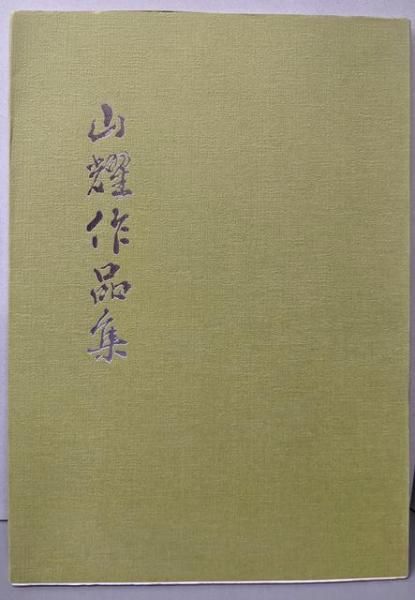 山耀作品集